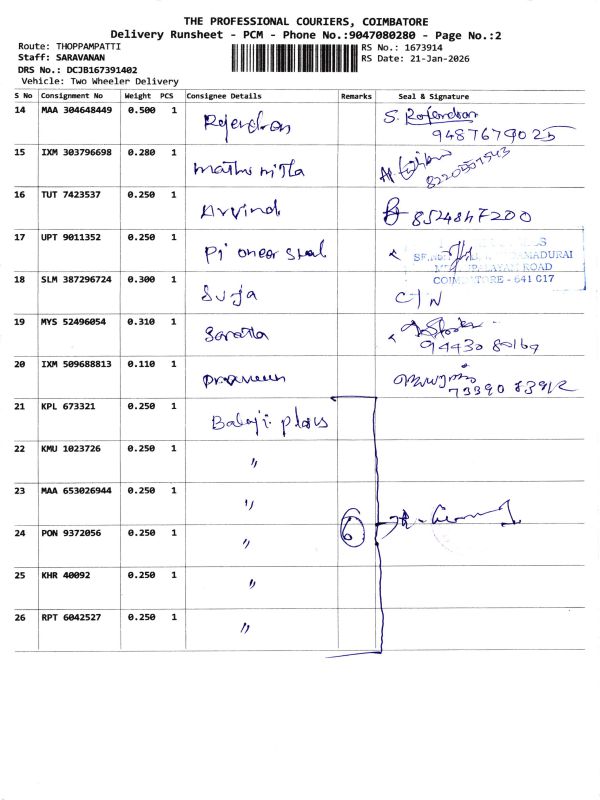 THE PROFESSIONAL COURIERS, COIMBATORE
Delivery Runsheet - PCM - Phone No.:9047080280 - Page No.:2
Route: THOPPAMPATTI
RS No.: 1673914
Staff: SARAVANAN
RS Date: 21-Jan-2026
DRS No.: DCJB167391402
Vehicle: Two Wheeler Delivery
S No Consignment No Weight PCS Consignee Details Remarks Seal & Signature
14 MAA 304648449 0.500 1 Rajendran S. Rajendran
9487679025
15 IXM 303796698 0.280 1
16 TUT 7423537 0.250 1 Arvind
17 UPT 9011352 0.250 1 Pioneer
ROAD
641 017
18 SLM 387296724 0.300 1 Surja
19 MYS 52496054 0.310 1
20 IXM 509688813 0.110 1 Praveen
73390 83912
21 KPL 673321 0.250 1 Balaji
22 KMU 1023726 0.250 1 "
23 MAA 653026944 0.250 1 "
24 PON 9372056 0.250 1 " 6
25 KHR 40092 0.250 1 "
26 RPT 6042527 0.250 1 "